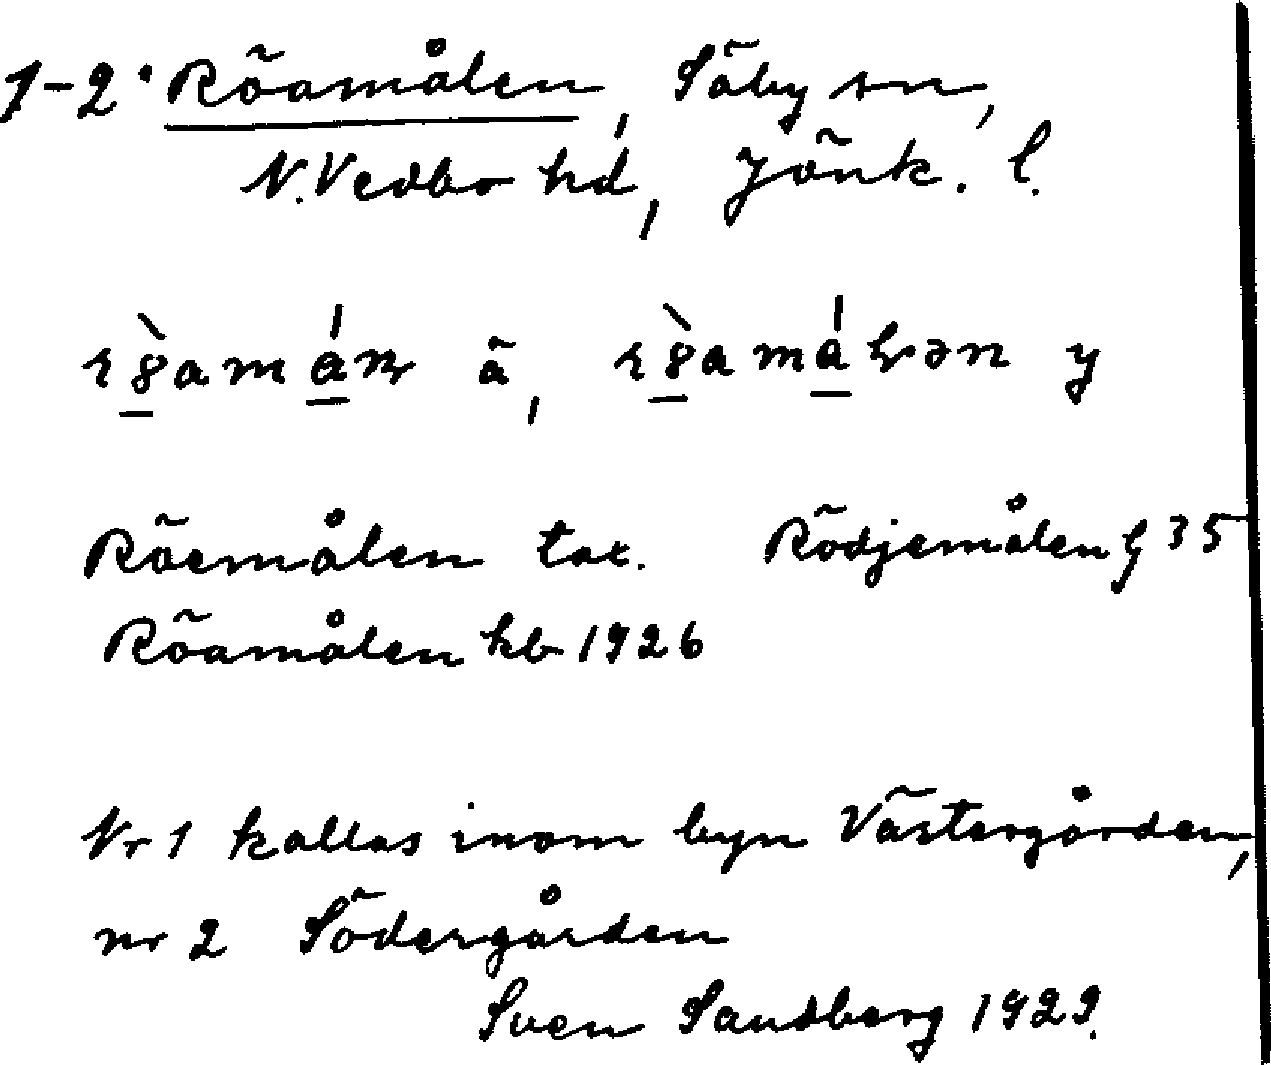 1-2. Röamålen, Säby sn,
N.Vedbo hd, Jönk. l.
ä, y
Röemålen tax. Rödjemålen G 35
Röamålen kb 1926
Nr 1 kallas inom byn Västergården,
nr 2 Södergården
Sven Sandberg 1929.